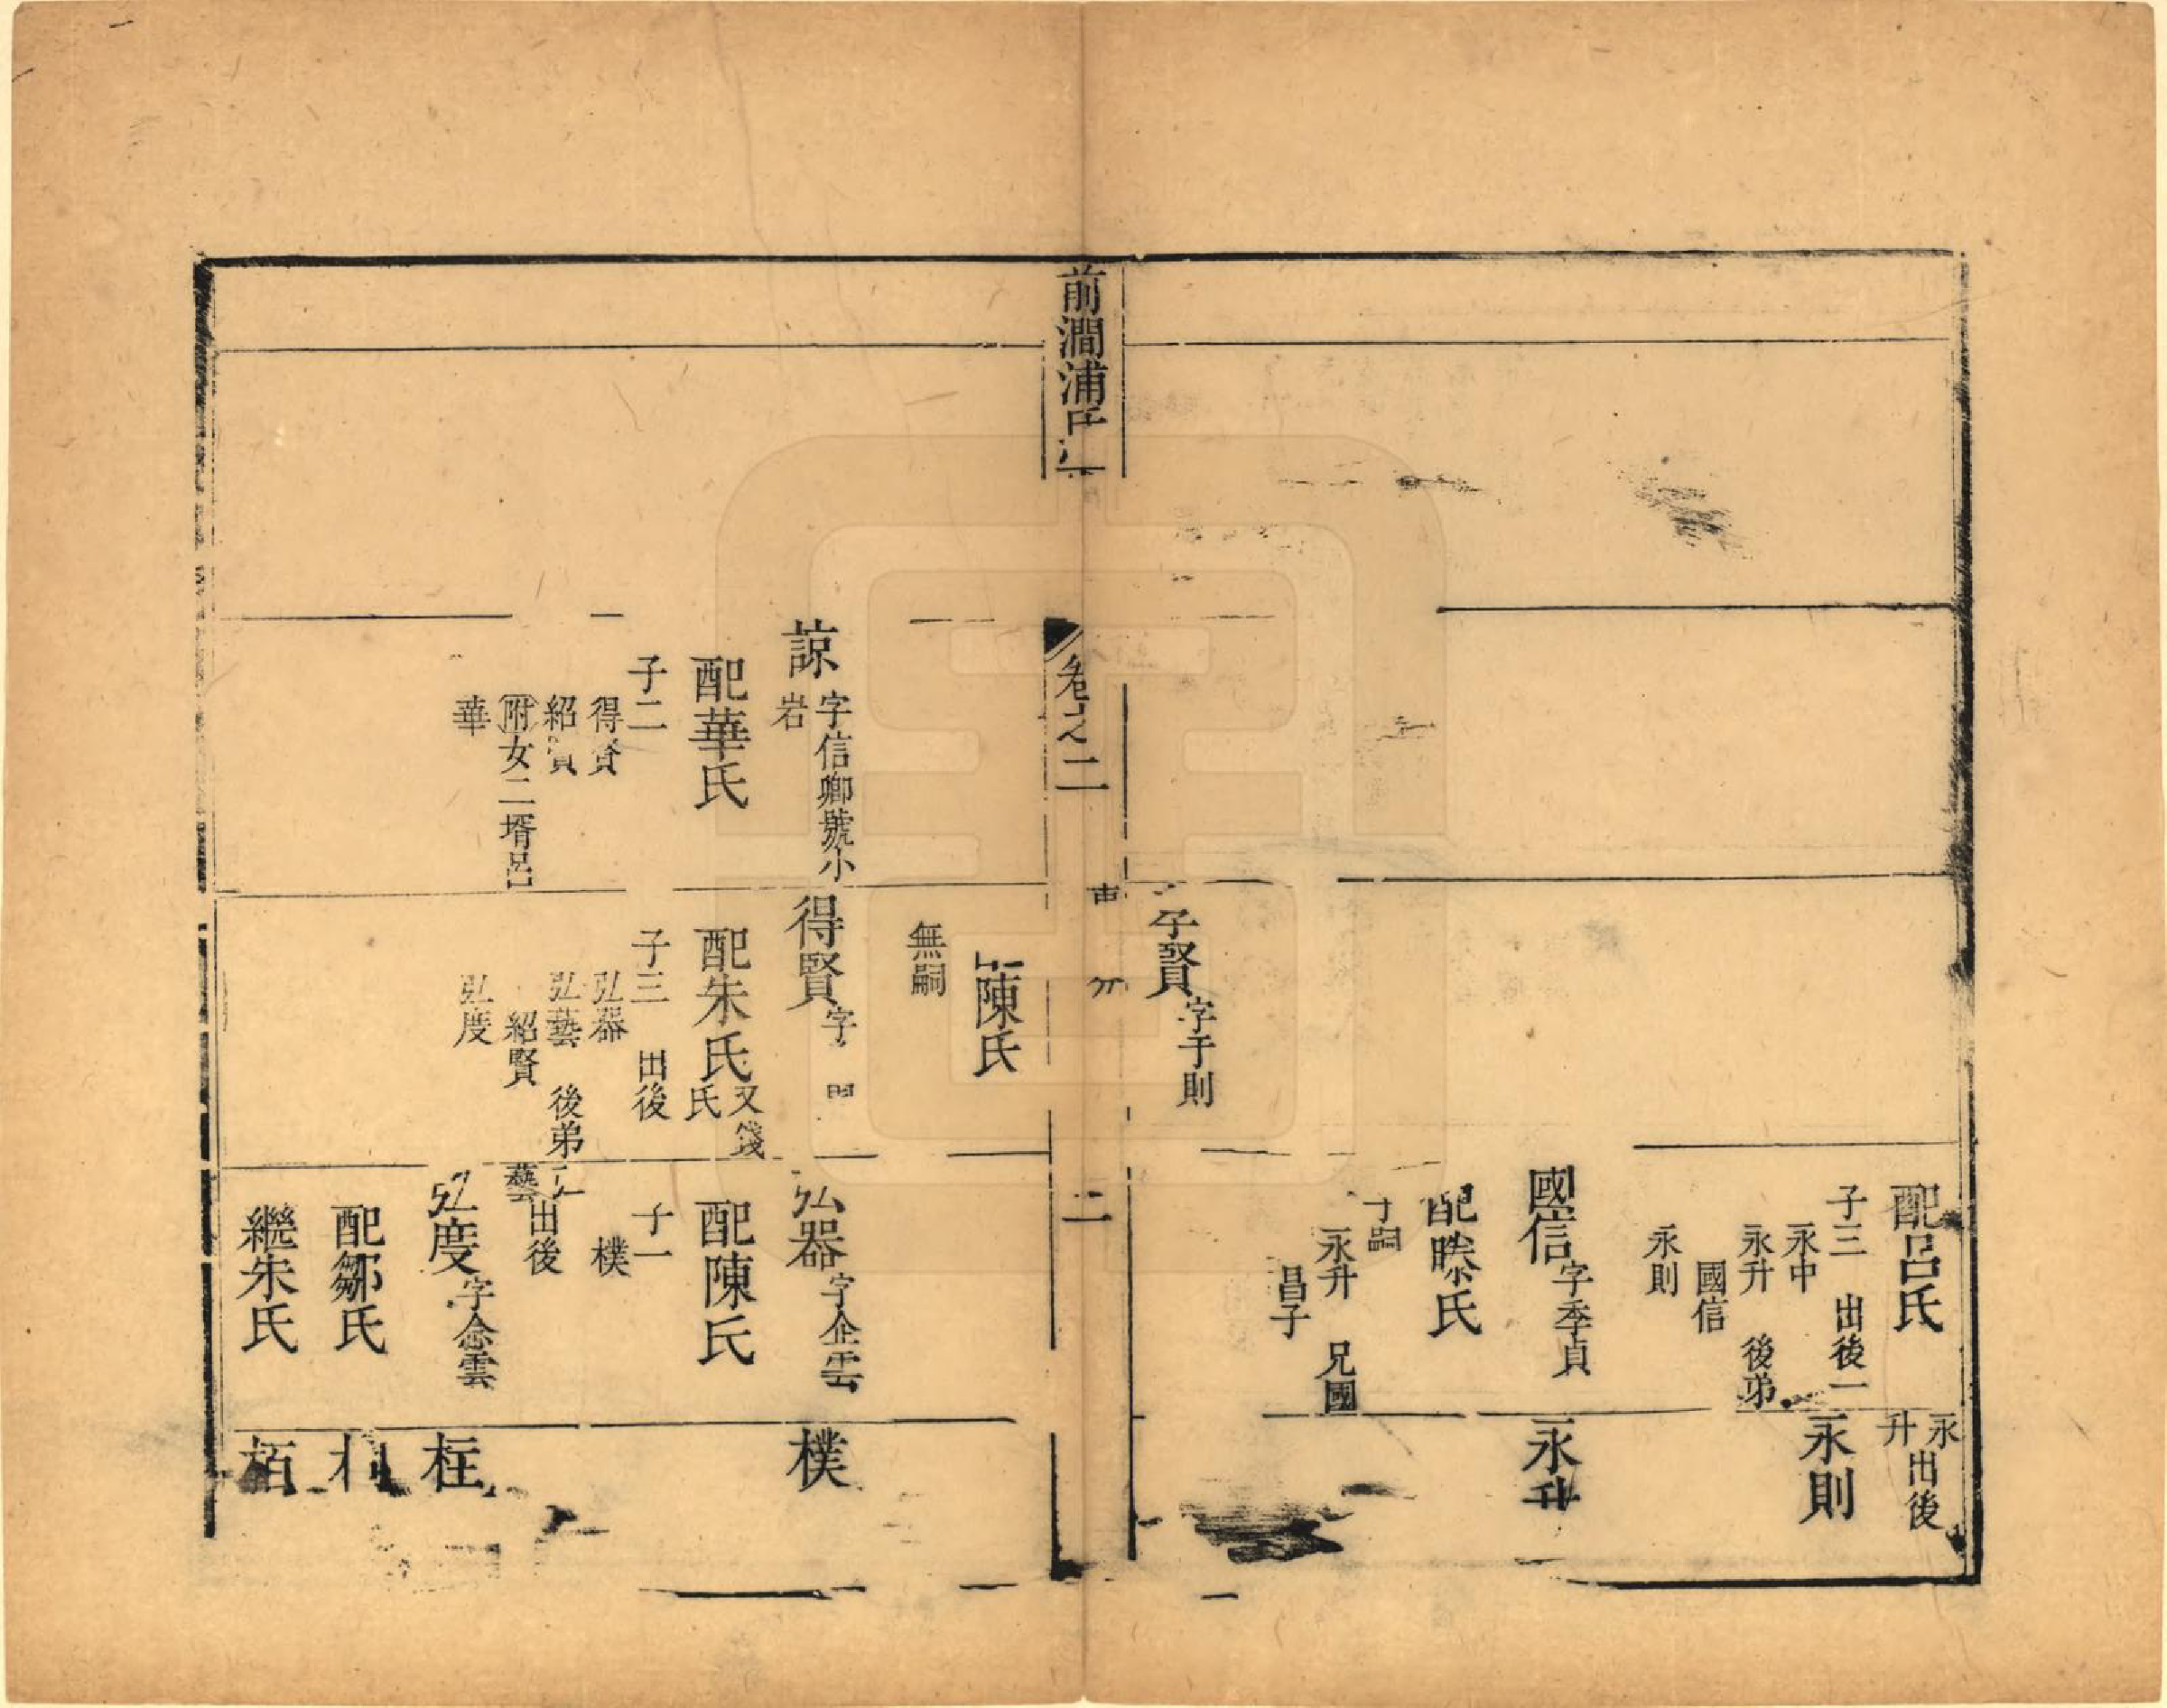 配呂氏
子三 出後一
永中
永升 後弟
國信
永則
國信 字季貞
配滕氏
子嗣
永升 兄國
昌子
永升 出後
永則
永升
賢 字于則
前澗浦氏
卷之二
二
陳氏
無嗣
諒 字信卿號小岩
配華氏
子二
得賢
紹賢
附女二壻呂
華
得賢 字
配朱氏 又錢氏
子三 出後
弘器
弘藝 後弟
紹賢
弘度
弘器 字企雲
配陳氏
子一
樸
藝 出後
弘度 字念雲
配鄒氏
繼朱氏
樸
枉
栢